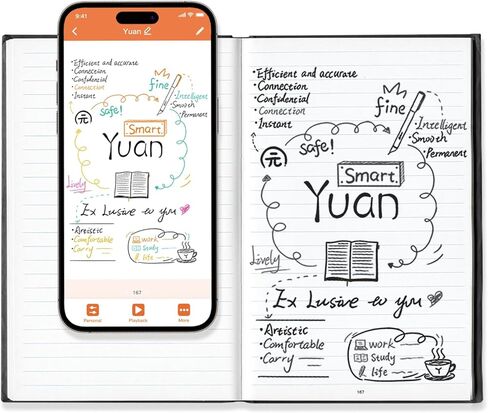 9:41
Yuan
•Efficient and accurate
•Connection
•Confidential
•Connection
•Instant
fine
Intelligent
•Smooth
•Permanent
safe!
Smart.
Yuan
Lively
Ex Lusive to you
•Artistic
•Comfortable
•Carry
work
study
life
Y
167
Personal
Playback
More
•Efficient and accurate
•Connection
•Confidential
•Connection
•Instant
fine
Intelligent
•Smooth
•Permanent
元
safe!
Smart.
Yuan
Lively
Ex Lusive to you
•Artistic
•Comfortable
•Carry
work
study
life
Y
167